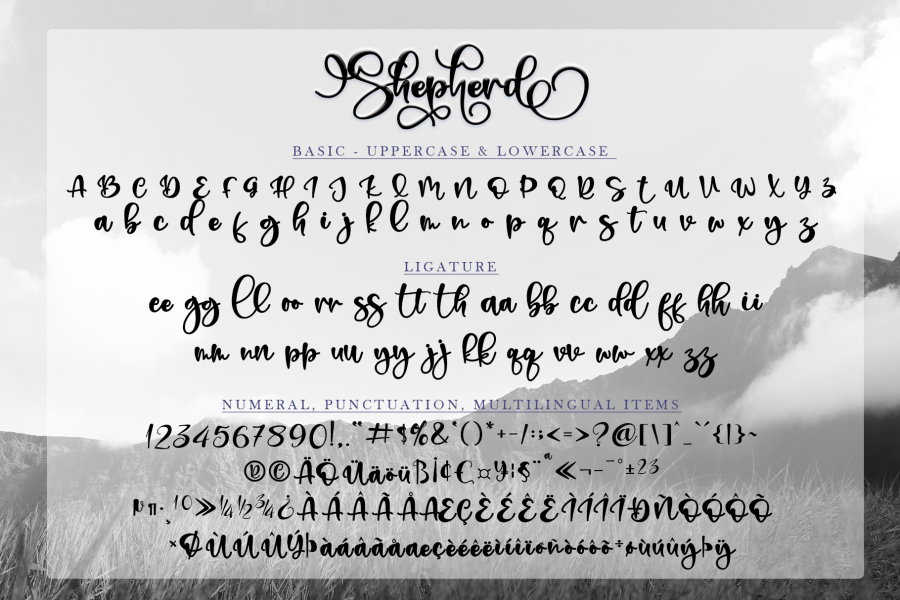 Shepherd
BASIC - UPPERCASE & LOWERCASE
A B C D E F G H I J K L M N O P Q R S T U V W X Y Z
a b c d e f g h i j k l m n o p q r s t u v w x y z
LIGATURE
ee gg ll oo rr ss tt th aa bb cc dd ff hh ii
mm nn pp uu yy jj kk qq vv ww xx zz
NUMERAL, PUNCTUATION, MULTILINGUAL ITEMS
1234567890!,."#$%&'()*+-/:;<=>?@[\]^_`{|}~
®©ÄÖÜäöüß¡¢€¤¥¦§¨ª≪¬-¯°±²³
µ¶·¸¹º≫¼½¾¿ÀÁÂÃÅÆÇÈÉÊËÌÍÎÏÐÑÒÓÔÕ
×ØÙÚÛÝÞàáâãåæçèéêëìíîïðñòóôõ÷øùúûýþÿ